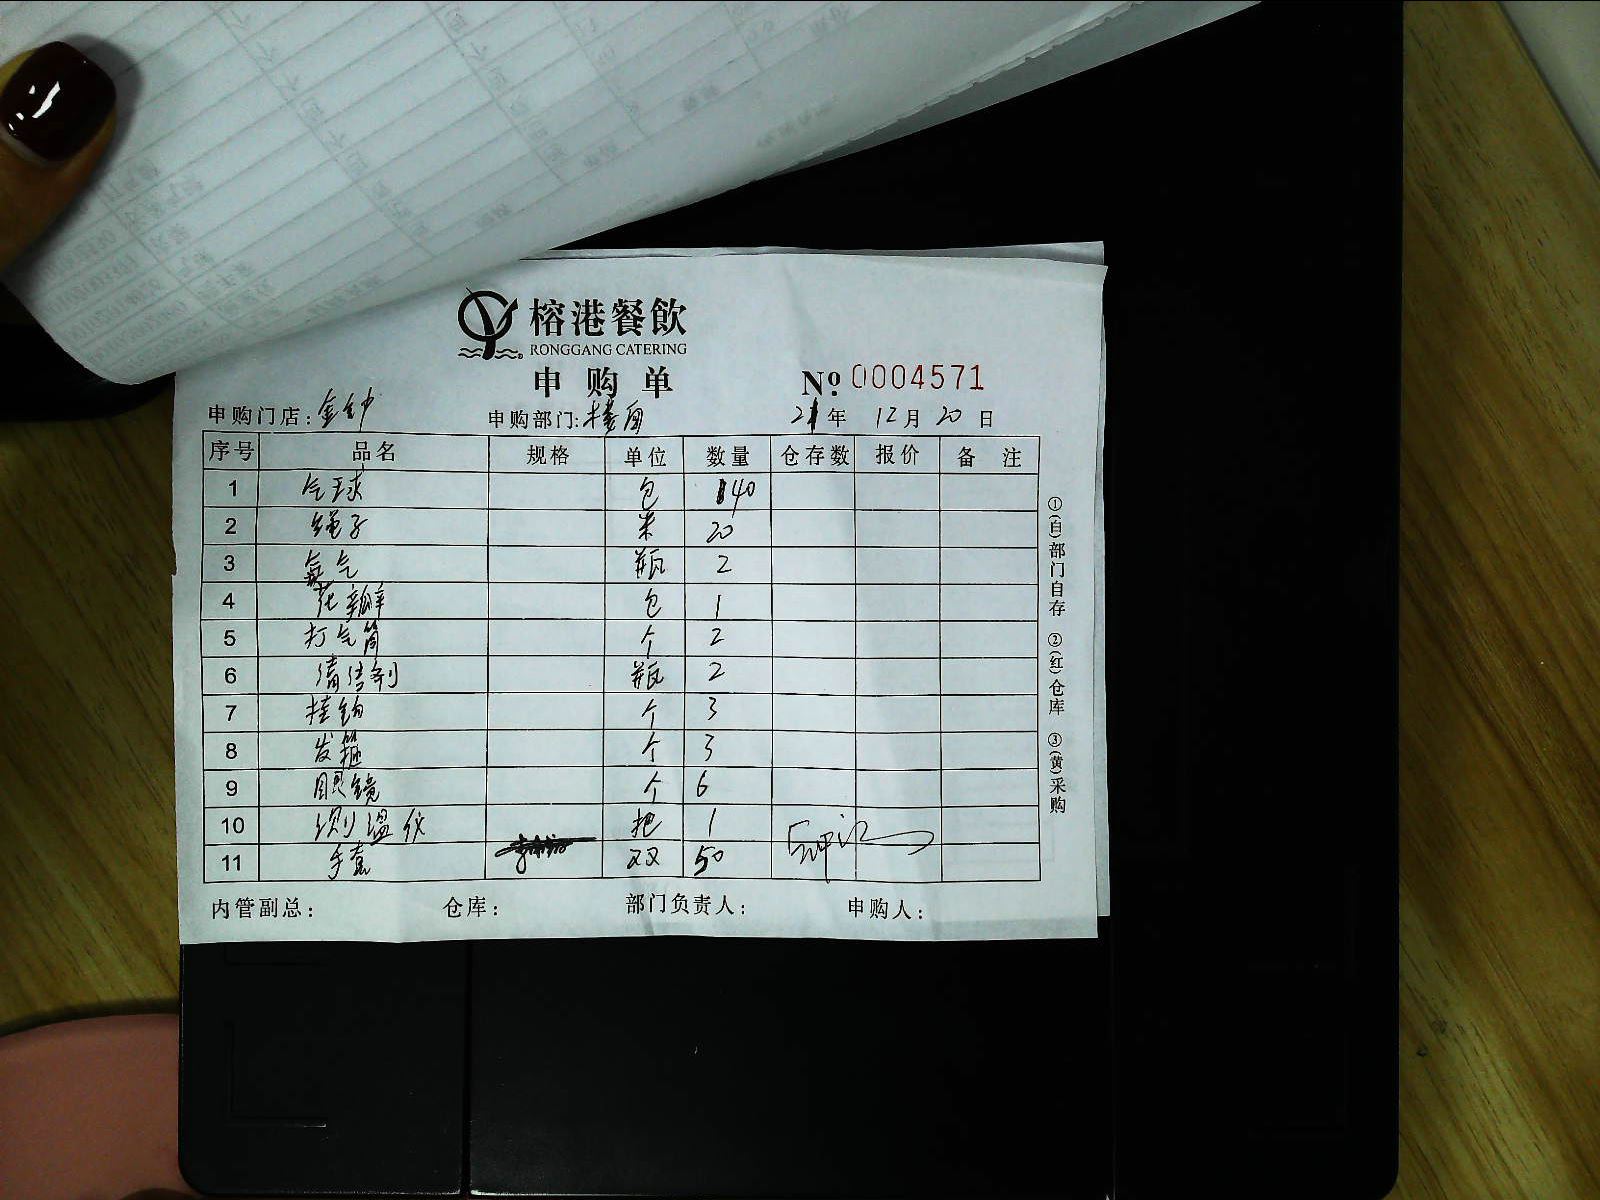 榕港餐飲
RONGGANG CATERING
申购单
No 0004571
申购门店:金钟 申购部门:楼面 21年 12月 20日
序号 品名 规格 单位 数量 仓存数 报价 备注
1 气球 包 140
2 绳子 米 20
3 氦气 瓶 2
4 花瓣 包 1
5 打气筒 个 2
6 清洁剂 瓶 2
7 挂钩 个 3
8 发箍 个 3
9 眼镜 个 6
10 测温仪 把 1
11 手套 双 50
内管副总: 仓库: 部门负责人: 申购人:
①(白)部门自存 ②(红)仓库 ③(黄)采购